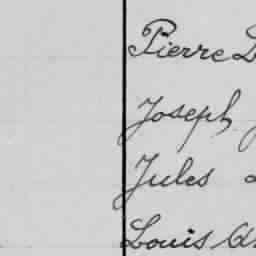 Pierre
Joseph
Jules
Louis